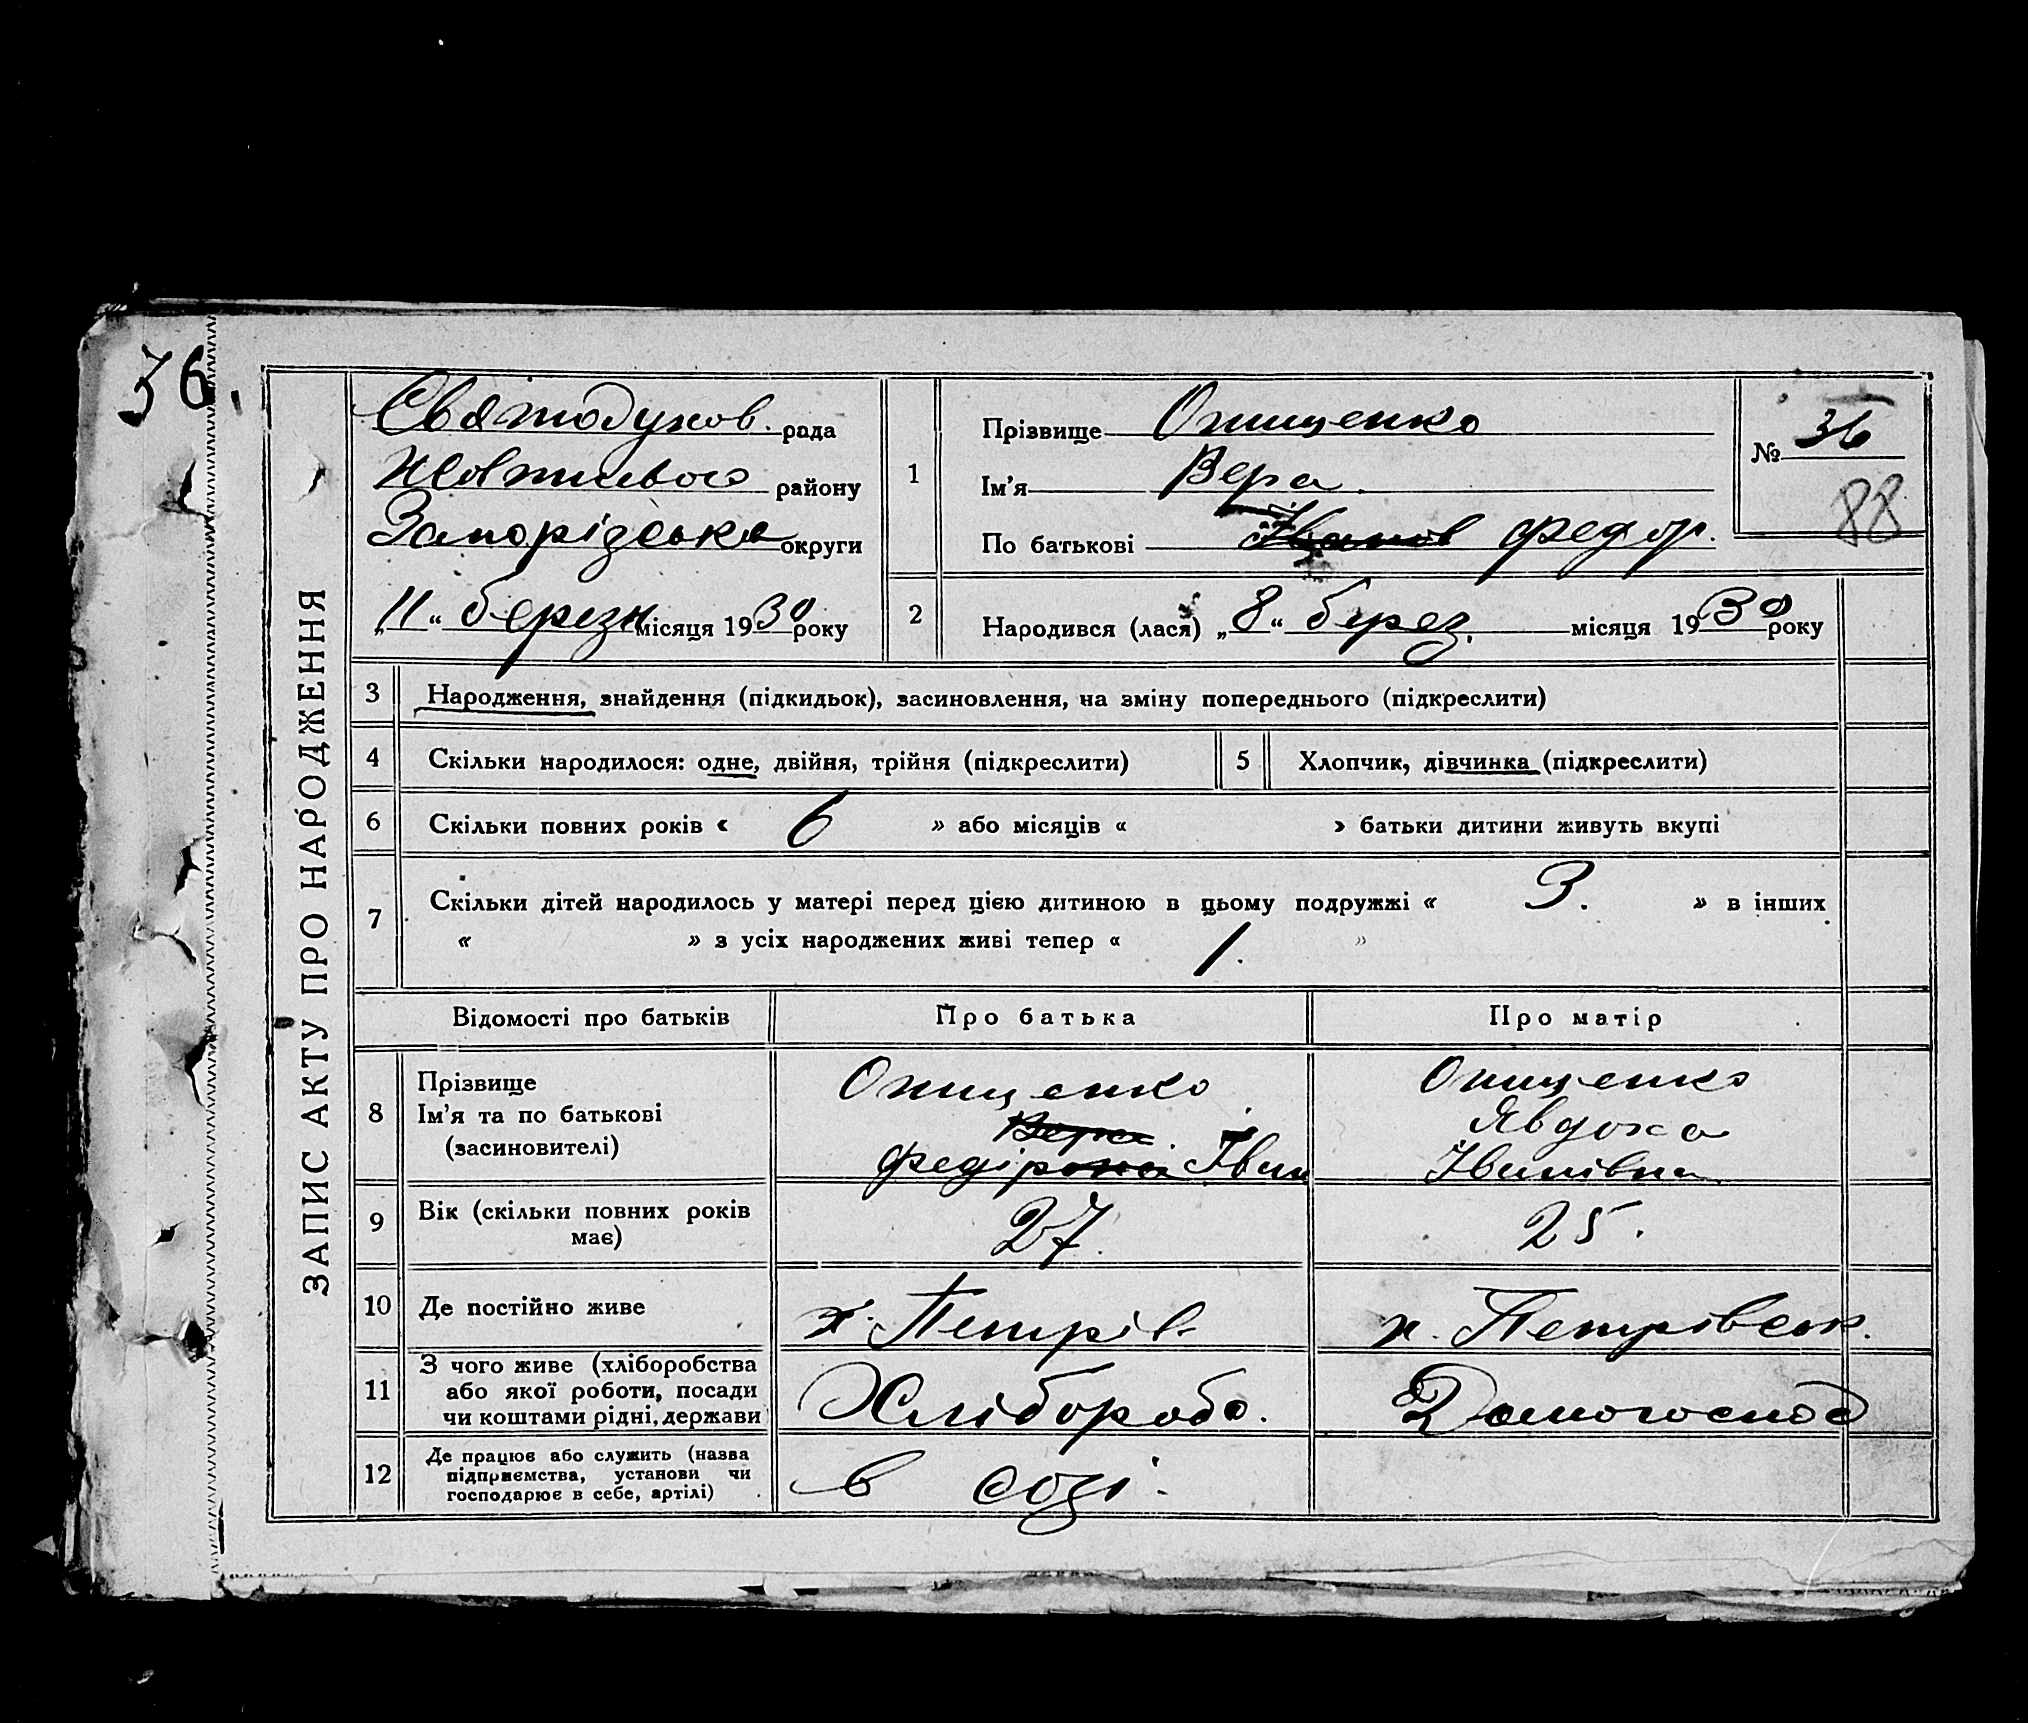 36.
ЗАПИС АКТУ ПРО НАРОДЖЕННЯ
Святодухов. рада
Жовтневого району
Запорізська округи
„11“ березн місяця 1930 року
1
Прізвище Онищенко
Ім'я Вера
По батькові Іванов Федор.
№ 36
88
2
Народився (лася) „8“ берез. місяця 1930 року
3 Народження, знайдення (підкидьок), засиновлення, на зміну попереднього (підкреслити)
4 Скільки народилося: одне, двійня, трійня (підкреслити) 5 Хлопчик, дівчинка (підкреслити)
6 Скільки повних років « 6 » або місяців « » батьки дитини живуть вкупі
7 Скільки дітей народилось у матері перед цією дитиною в цьому подружжі « 3. » в інших
« » з усіх народжених живі тепер « 1. »
Відомості про батьків Про батька Про матір
8
Прізвище
Ім'я та по батькові
(засиновителі)
Онищенко
Вера.
Федірова Іван
Онищенко
Явдоха
Іванівна
9 Вік (скільки повних років
має)
27.
25.
10 Де постійно живе х. Петрів х. Петрівськ.
11
З чого живе (хліборобства
або якої роботи, посади
чи коштами рідні, держави
Хлібороб. Домогоспод
12
Де працює або служить (назва
підприємства, установи чи
господарює в себе, артілі)
в созі.